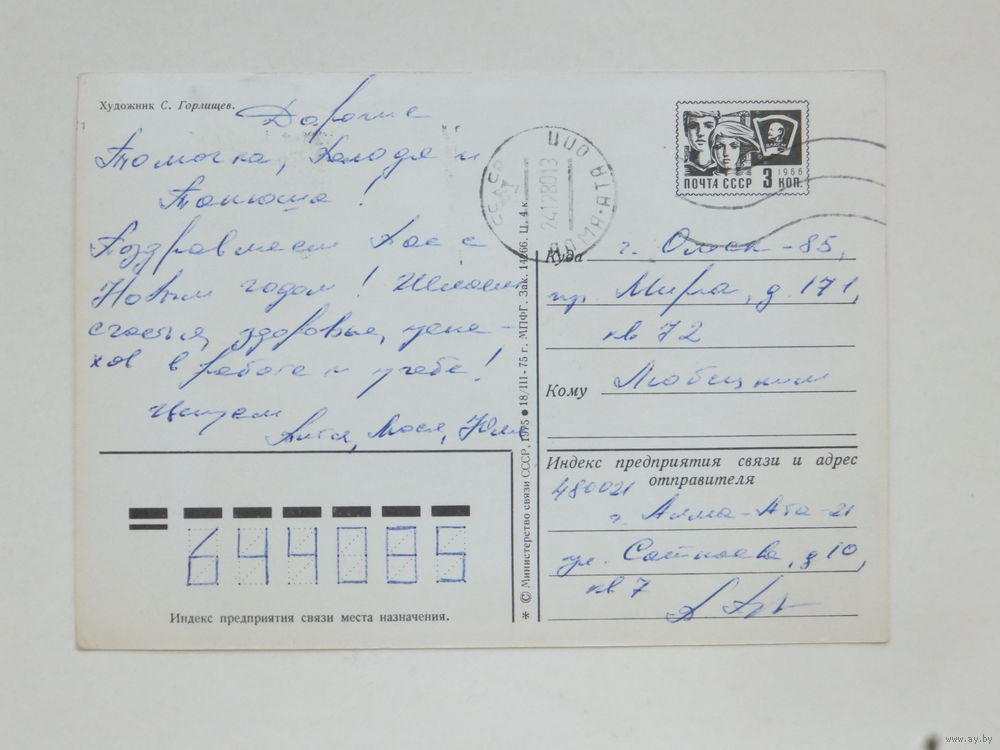 Художник С. Горлищев.
Дорогие
Томочка, Володя и
Танюша!
Поздравляем Вас с
Новым годом! Желаем
счастья, здоровья, успе-
хов в работе и учебе!
Целуем
Алма, Мося, Юля
ПОЧТА СССР 3 КОП.
1966
ВЛКСМ
СССР
ЦПО АТА
АЛМА-АТА
2412801З
Куда г. Омск-85,
пр. Мира, д. 171,
кв 72
Кому Любецким
Индекс предприятия связи и адрес
отправителя
480021
г. Алма-Ата-21
ул. Сатпаева, д 10,
кв 7
644085
Индекс предприятия связи места назначения.
* © Министерство связи СССР, 1975 ● 18/III-75 г. МПФГ. Зак. 14266. Ц. 4 к.
www.ay.by